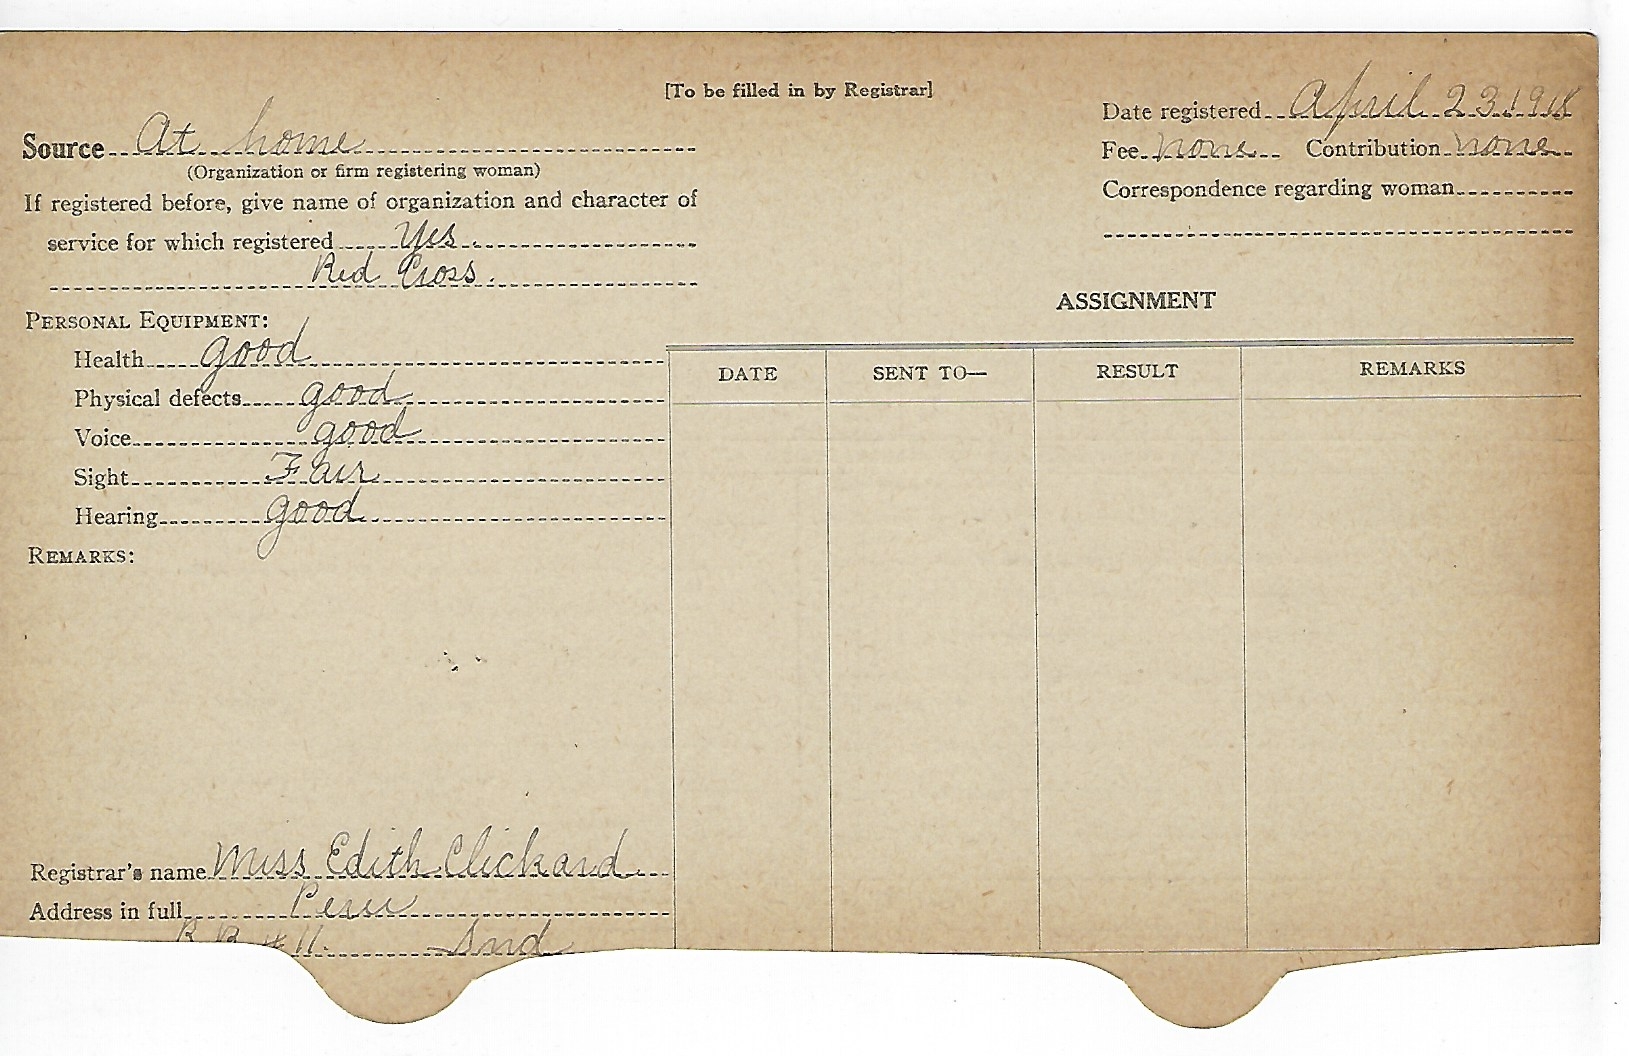 [To be filled in by Registrar]
Source At home
(Organization or firm registering woman)
If registered before, give name of organization and character of
service for which registered Yes.
Red Cross.
PERSONAL EQUIPMENT:
Health good
Physical defects good
Voice good
Sight Fair
Hearing good
REMARKS:
Registrar's name Miss Edith Clickard
Address in full Peru
R R # 11. Ind
Date registered April 23 1918
Fee none Contribution none
Correspondence regarding woman
ASSIGNMENT
DATE SENT TO— RESULT REMARKS